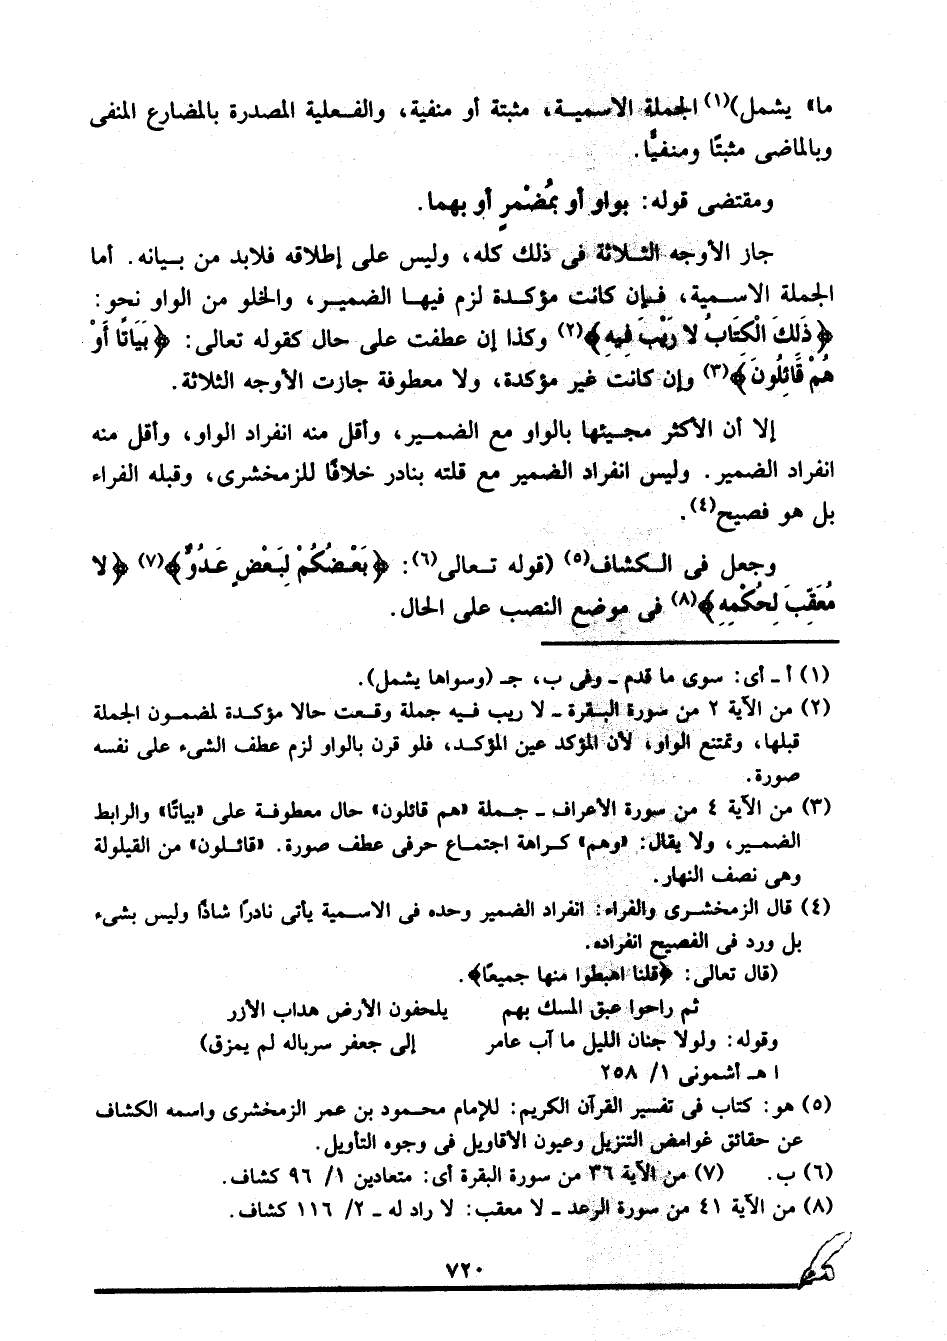 ما» يشمل)(١) الجملة الاسمية، مثبتة أو منفية، والفعلية المصدرة بالمضارع المنفى
وبالماضى مثبتًا ومنفيًّا.
ومقتضى قوله: بواو أو بمُضْمرٍ أو بهما.
جاز الأوجه الثلاثة فى ذلك كله، وليس على إطلاقه فلابد من بيانه. أما
الجملة الاسمية، فإن كانت مؤكدة لزم فيها الضمير، والخلو من الواو نحو:
﴿ذَلكَ الْكتَابُ لا رَيْبَ فيه﴾(٢) وكذا إن عطفت على حال كقوله تعالى: ﴿بَيَاتًا أَوْ
هُمْ قَائِلُونَ﴾(٣) وإن كانت غير مؤكدة، ولا معطوفة جازت الأوجه الثلاثة.
إلا أن الأكثر مجيئها بالواو مع الضمير، وأقل منه انفراد الواو، وأقل منه
انفراد الضمير. وليس انفراد الضمير مع قلته بنادر خلافًا للزمخشرى، وقبله الفراء
بل هو فصيح(٤).
وجعل فى الكشاف(٥) (قوله تعالى(٦): ﴿بَعْضُكُمْ لِبَعْضٍ عَدُوٌّ﴾(٧) ﴿لا
مُعَقِّبَ لِحُكْمِهِ﴾(٨) فى موضع النصب على الحال.
(١) أ ـ أى: سوى ما قدم ـ وفى ب، جـ (وسواها يشمل).
(٢) من الآية ٢ من سورة البقرة ـ لا ريب فيه جملة وقعت حالا مؤكدة لمضمون الجملة
قبلها، وتمتنع الواو، لأن المؤكد عين المؤكد، فلو قرن بالواو لزم عطف الشىء على نفسه
صورة.
(٣) من الآية ٤ من سورة الأعراف ـ جملة «هم قائلون» حال معطوفة على «بياتًا» والرابط
الضمير، ولا يقال: «وهم» كراهة اجتماع حرفى عطف صورة. «قائلون» من القيلولة
وهى نصف النهار.
(٤) قال الزمخشرى والفراء: انفراد الضمير وحده فى الاسمية يأتى نادرًا شاذًا وليس بشىء
بل ورد فى الفصيح انفراده.
(قال تعالى: ﴿قلنا اهبطوا منها جميعًا﴾.
ثم راحوا عبق المسك بهم يلحفون الأرض هداب الأزر
وقوله: ولولا جنان الليل ما آب عامر إلى جعفر سرباله لم يمزق)
ا هـ أشمونى ١/ ٢٥٨
(٥) هو: كتاب فى تفسير القرآن الكريم: للإمام محمود بن عمر الزمخشرى واسمه الكشاف
عن حقائق غوامض التنزيل وعيون الأقاويل فى وجوه التأويل.
(٦) ب. (٧) من الآية ٣٦ من سورة البقرة أى: متعادين ١/ ٩٦ كشاف.
(٨) من الآية ٤١ من سورة الرعد ـ لا معقب: لا راد له ـ ٢/ ١١٦ كشاف.
٧٢٠